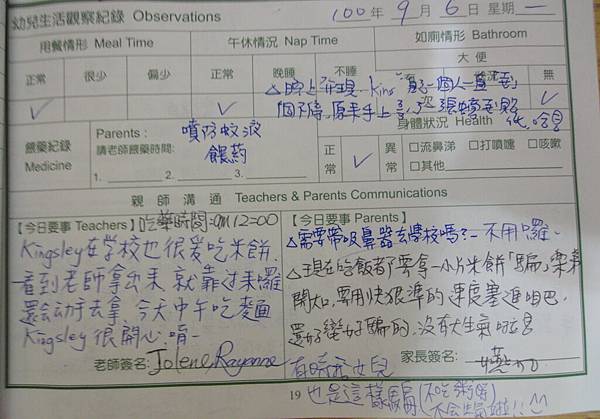 幼兒生活觀察紀錄 Observations
100年9月6日星期一
用餐情形 Meal Time
午休情況 Nap Time
如廁情形 Bathroom
正常 很少 偏少
正常 晚睡 不睡
大便
無
△晚上發現 King 自己一個人一直
個不停, 原來手上
餵藥紀錄
Medicine
Parents:
請老師餵藥時間:
1. 2. 3.
噴防蚊液
餵葯
身體狀況 Health
正常 異常 □流鼻涕 □打噴嚏 □咳嗽
□其他
親師溝通 Teachers & Parents Communications
【今日要事 Teachers】吃藥時間:PM12:00
Kingsley在学校也很爱吃米餅.
看到老師拿出來, 就靠过來囉
還会动手去拿, 今天中午吃麵
Kingsley 很開心唷~
老師簽名: Jolene, Rayanne
【今日要事 Parents】
△需要帶吸鼻器去學校嗎?–不用囉~
△現在吃飯都要拿一小片米餅「騙」
開始, 要用快狠準的速度塞進嘴巴.
還好蠻好騙的, 沒有太生氣
家長簽名:
有時禾女兒
也是這樣騙(不吃粥
不会生氣啦!! ^^
19